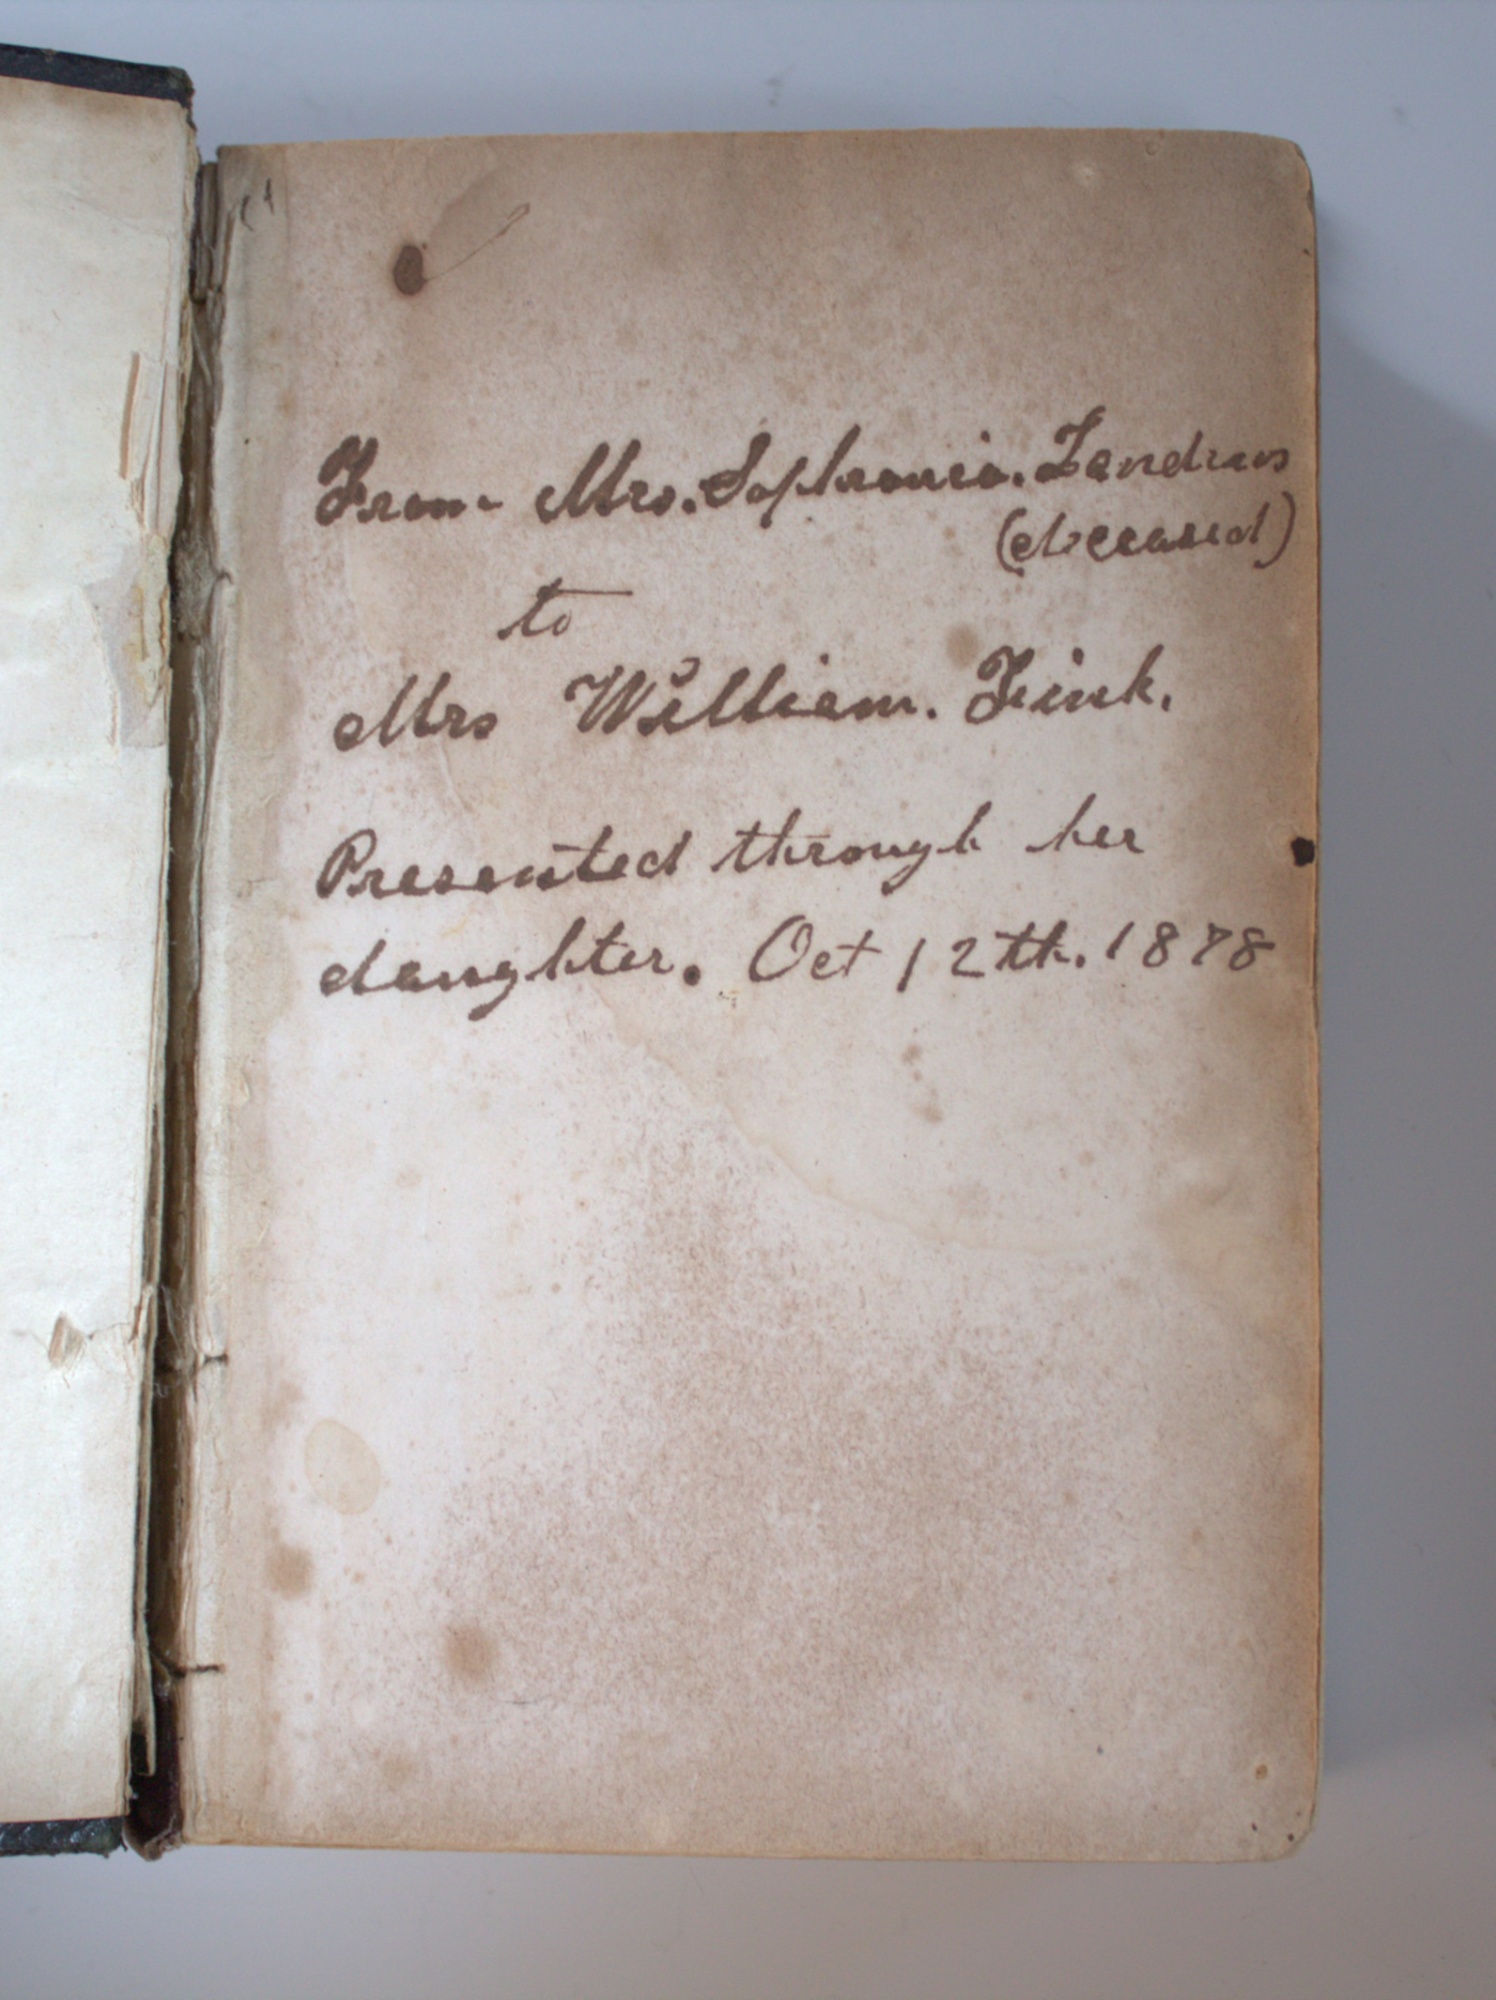 From Mrs. Sophronia. Landrus
(deceased)
to
Mrs William. Fink.
Presented through her
daughter. Oct 12th. 1878